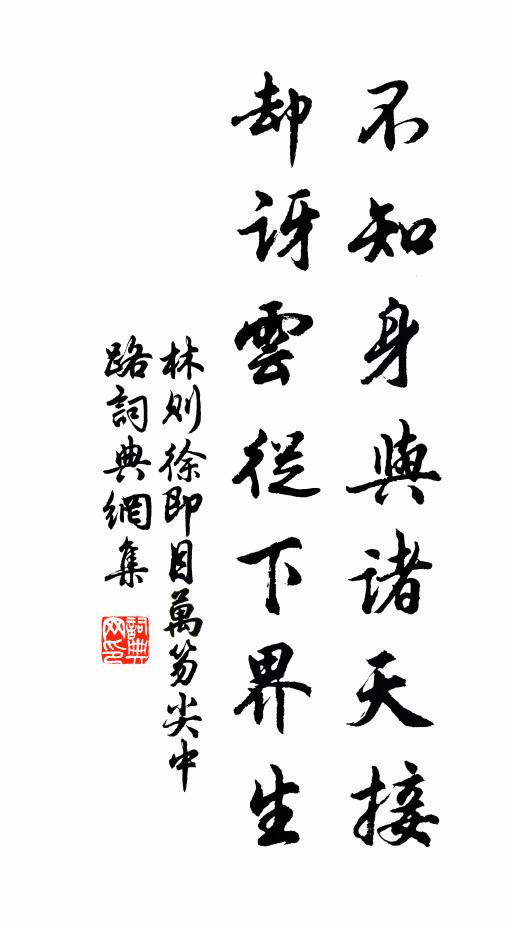 不知身與諸天接
却訝雲從下界生
林则徐即目萬笏尖中
路詞典網集
詞典
网印